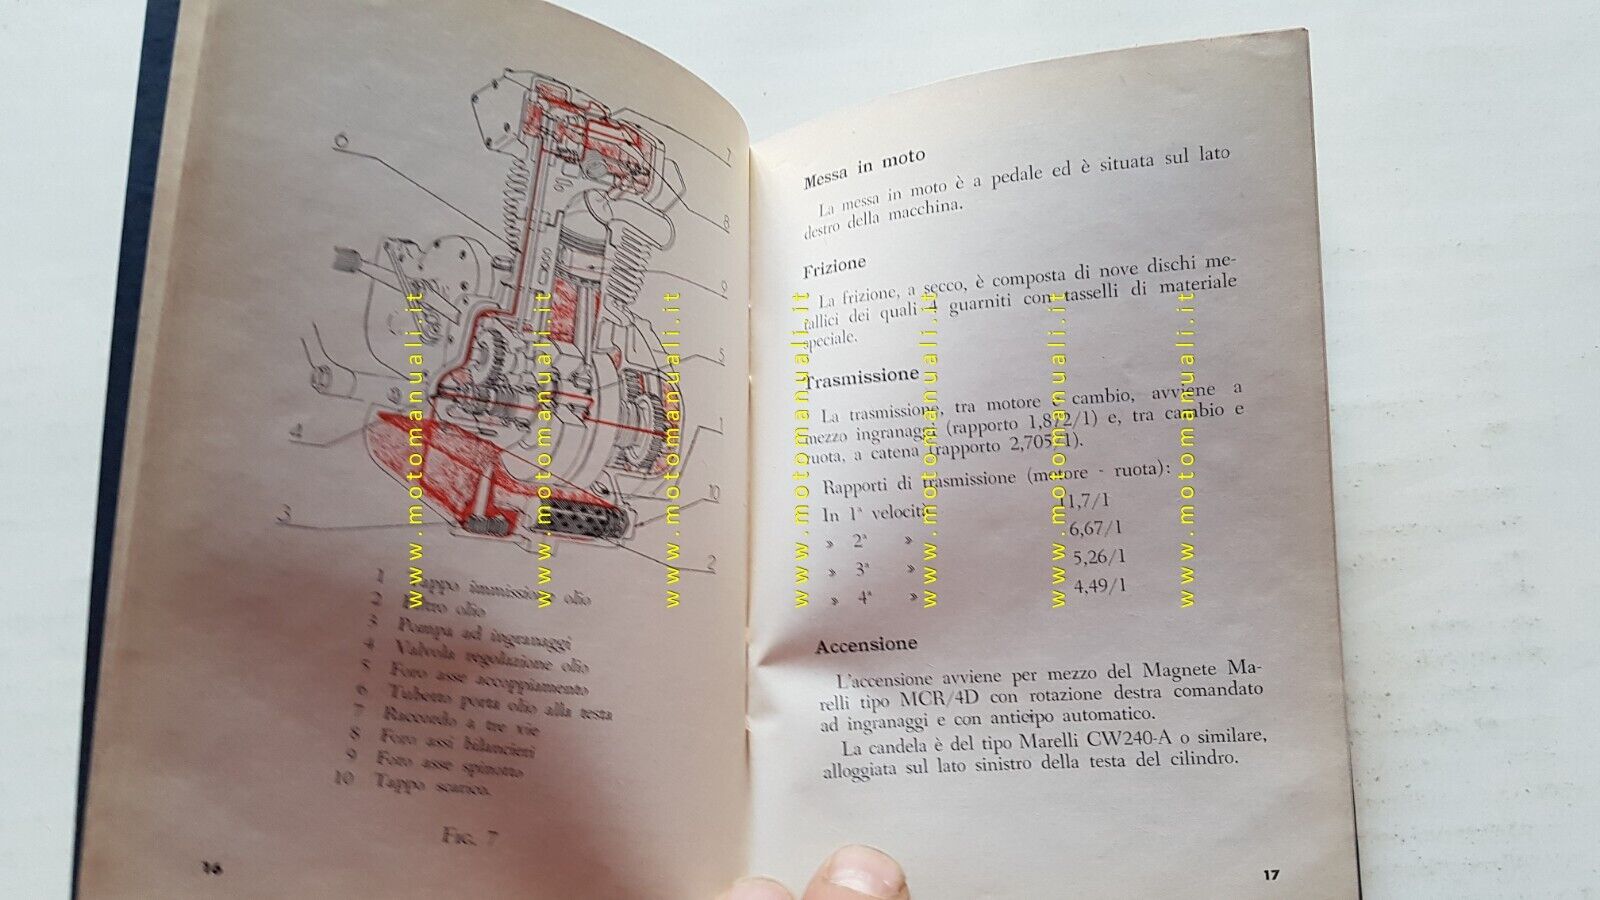 6
7
8
9
5
1
4
10
3
2
1 Tappo immissione olio
2 Filtro olio
3 Pompa ad ingranaggi
4 Valvola regolazione olio
5 Foro asse accoppiamento
6 Tubetto porta olio alla testa
7 Raccordo a tre vie
8 Foro assi bilancieri
9 Foro asse spinotto
10 Tappo scarico.
Fig. 7
16
Messa in moto
La messa in moto è a pedale ed è situata sul lato
destro della macchina.
Frizione
La frizione, a secco, è composta di nove dischi me-
tallici dei quali 4 guarniti con tasselli di materiale
speciale.
Trasmissione
La trasmissione, tra motore e cambio, avviene a
mezzo ingranaggi (rapporto 1,872/1) e, tra cambio e
ruota, a catena (rapporto 2,705/1).
Rapporti di trasmissione (motore - ruota):
In 1ª velocità 11,7/1
» 2ª » 6,67/1
» 3ª » 5,26/1
» 4ª » 4,49/1
Accensione
L'accensione avviene per mezzo del Magnete Ma-
relli tipo MCR/4D con rotazione destra comandato
ad ingranaggi e con anticipo automatico.
La candela è del tipo Marelli CW240-A o similare,
alloggiata sul lato sinistro della testa del cilindro.
17
www.motomanuali.it
www.motomanuali.it
www.motomanuali.it
www.motomanuali.it
www.motomanuali.it
www.motomanuali.it
www.motomanuali.it